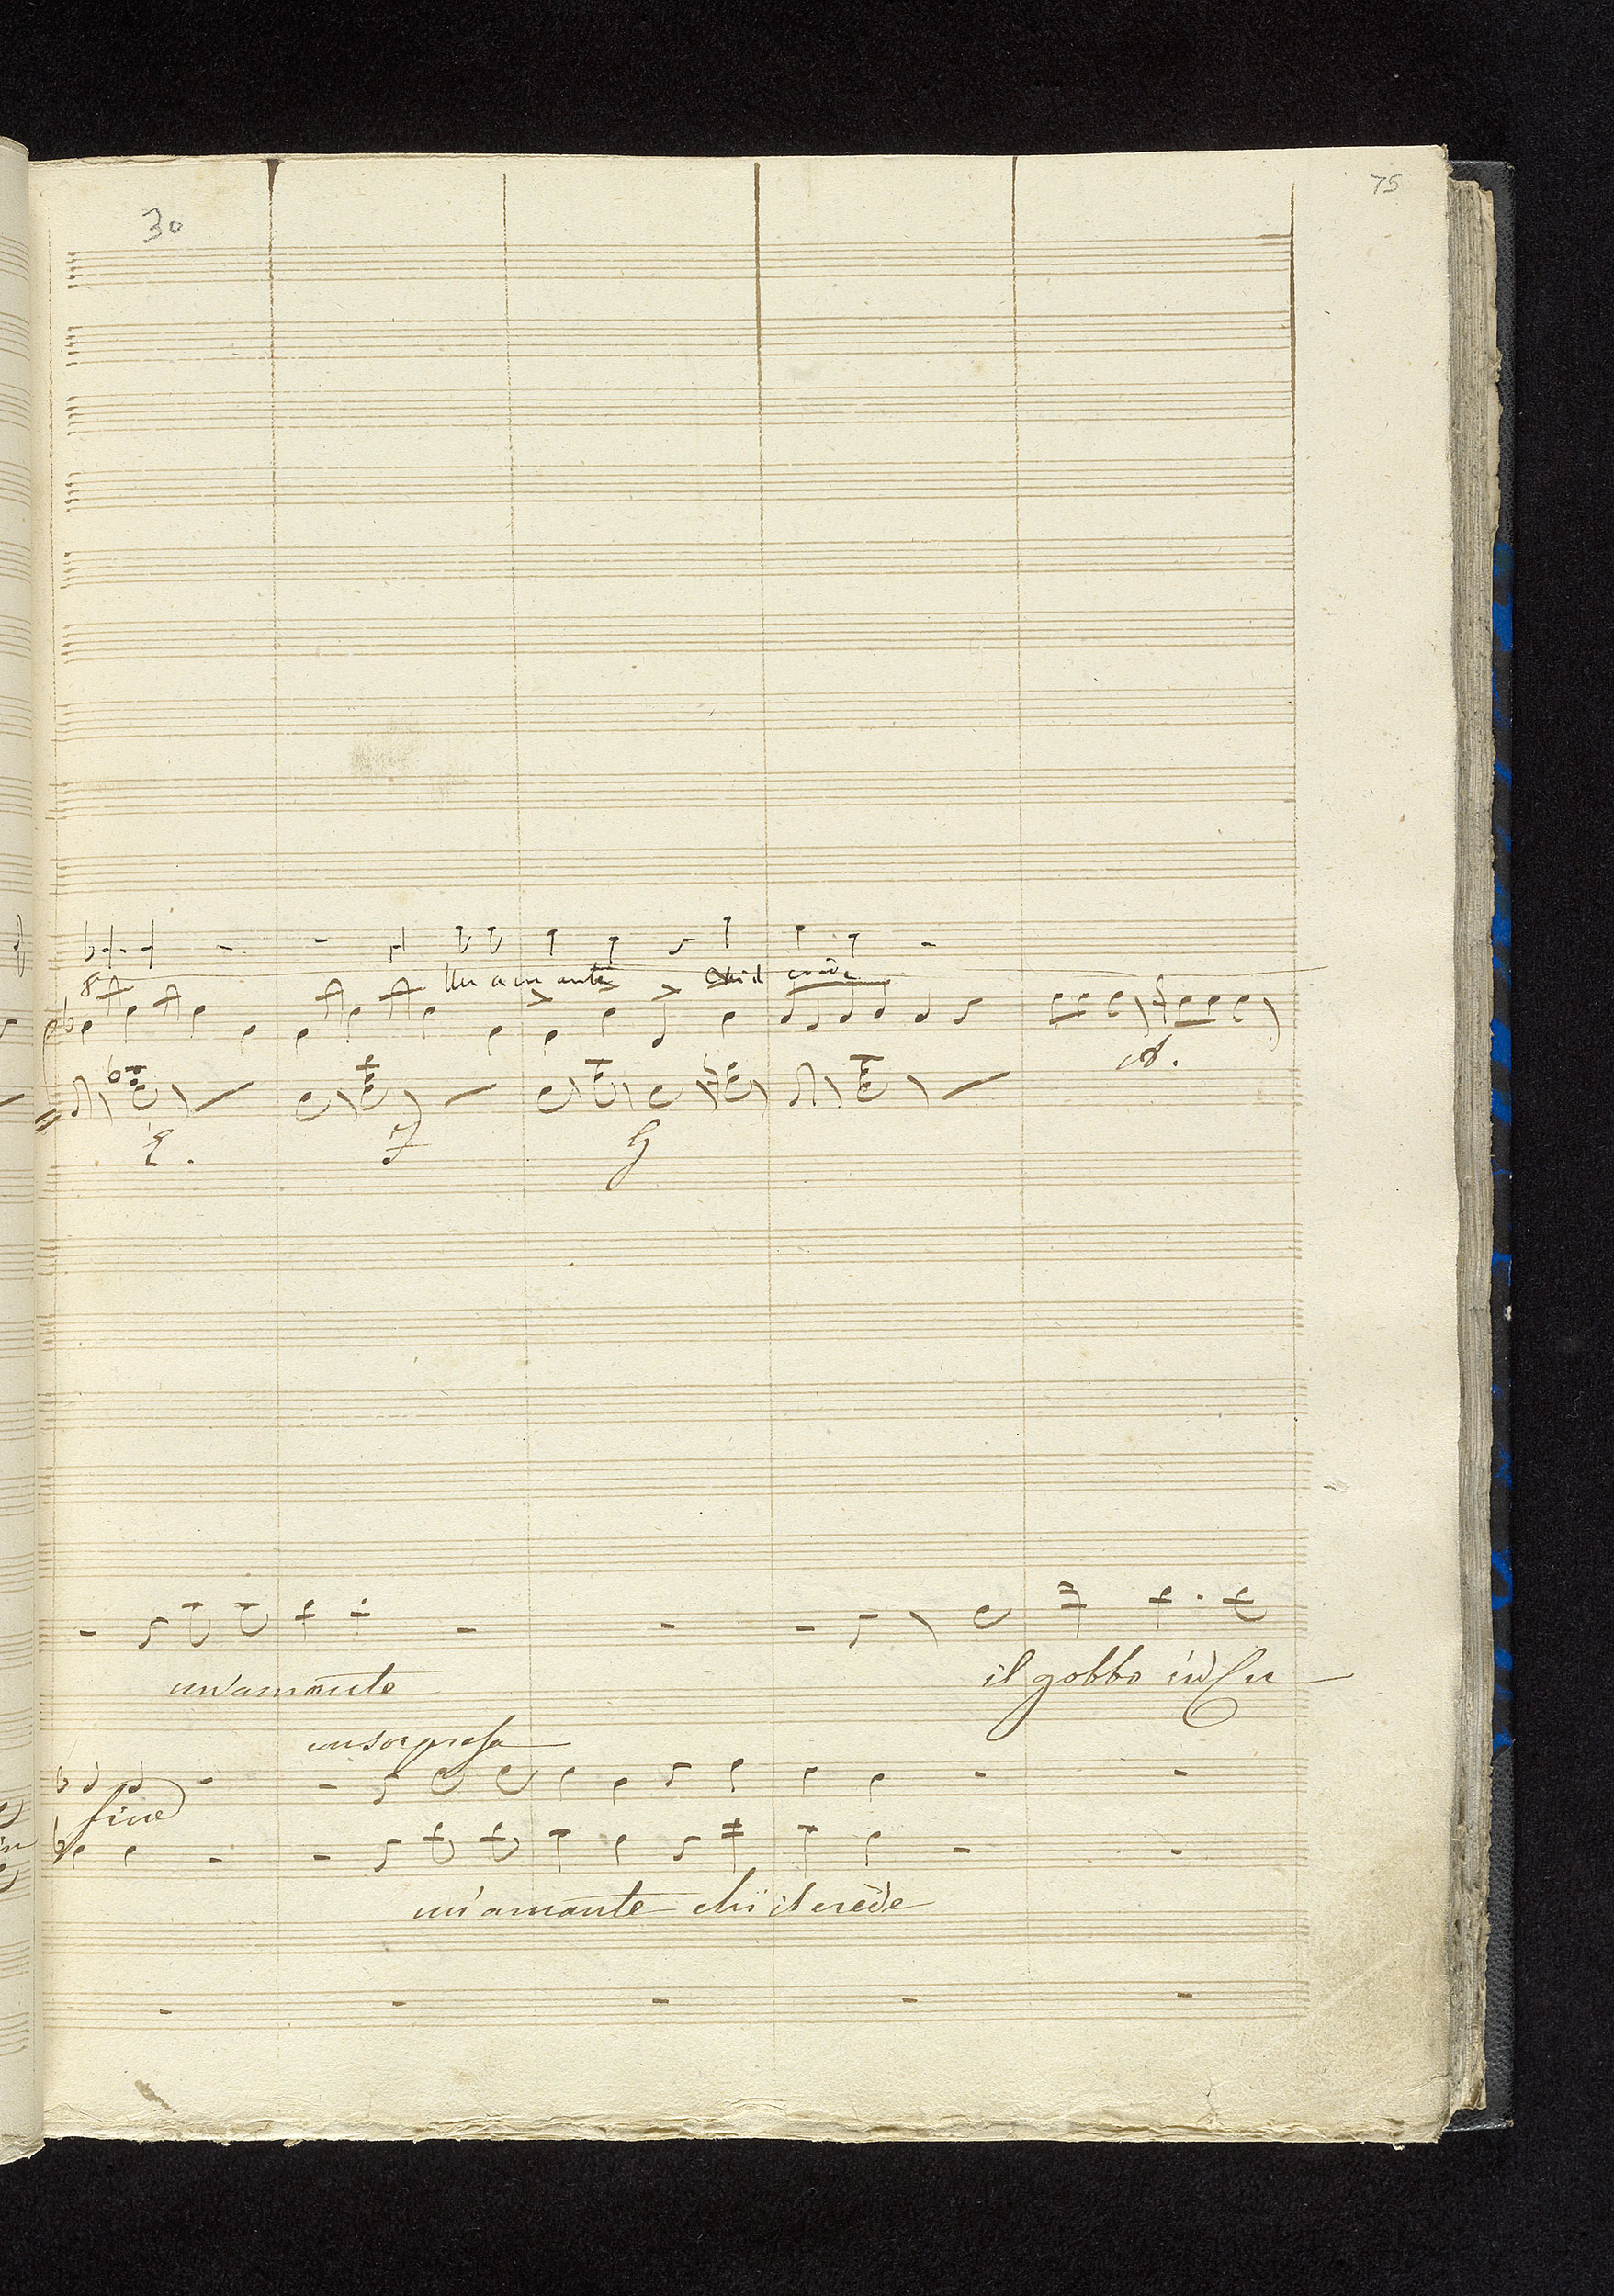 75
30
8ª
Un amante Chi il crede
E.
F
G
un'amante
il gobbo in Cu
un sorpresa
fine
un'amante chi il crede